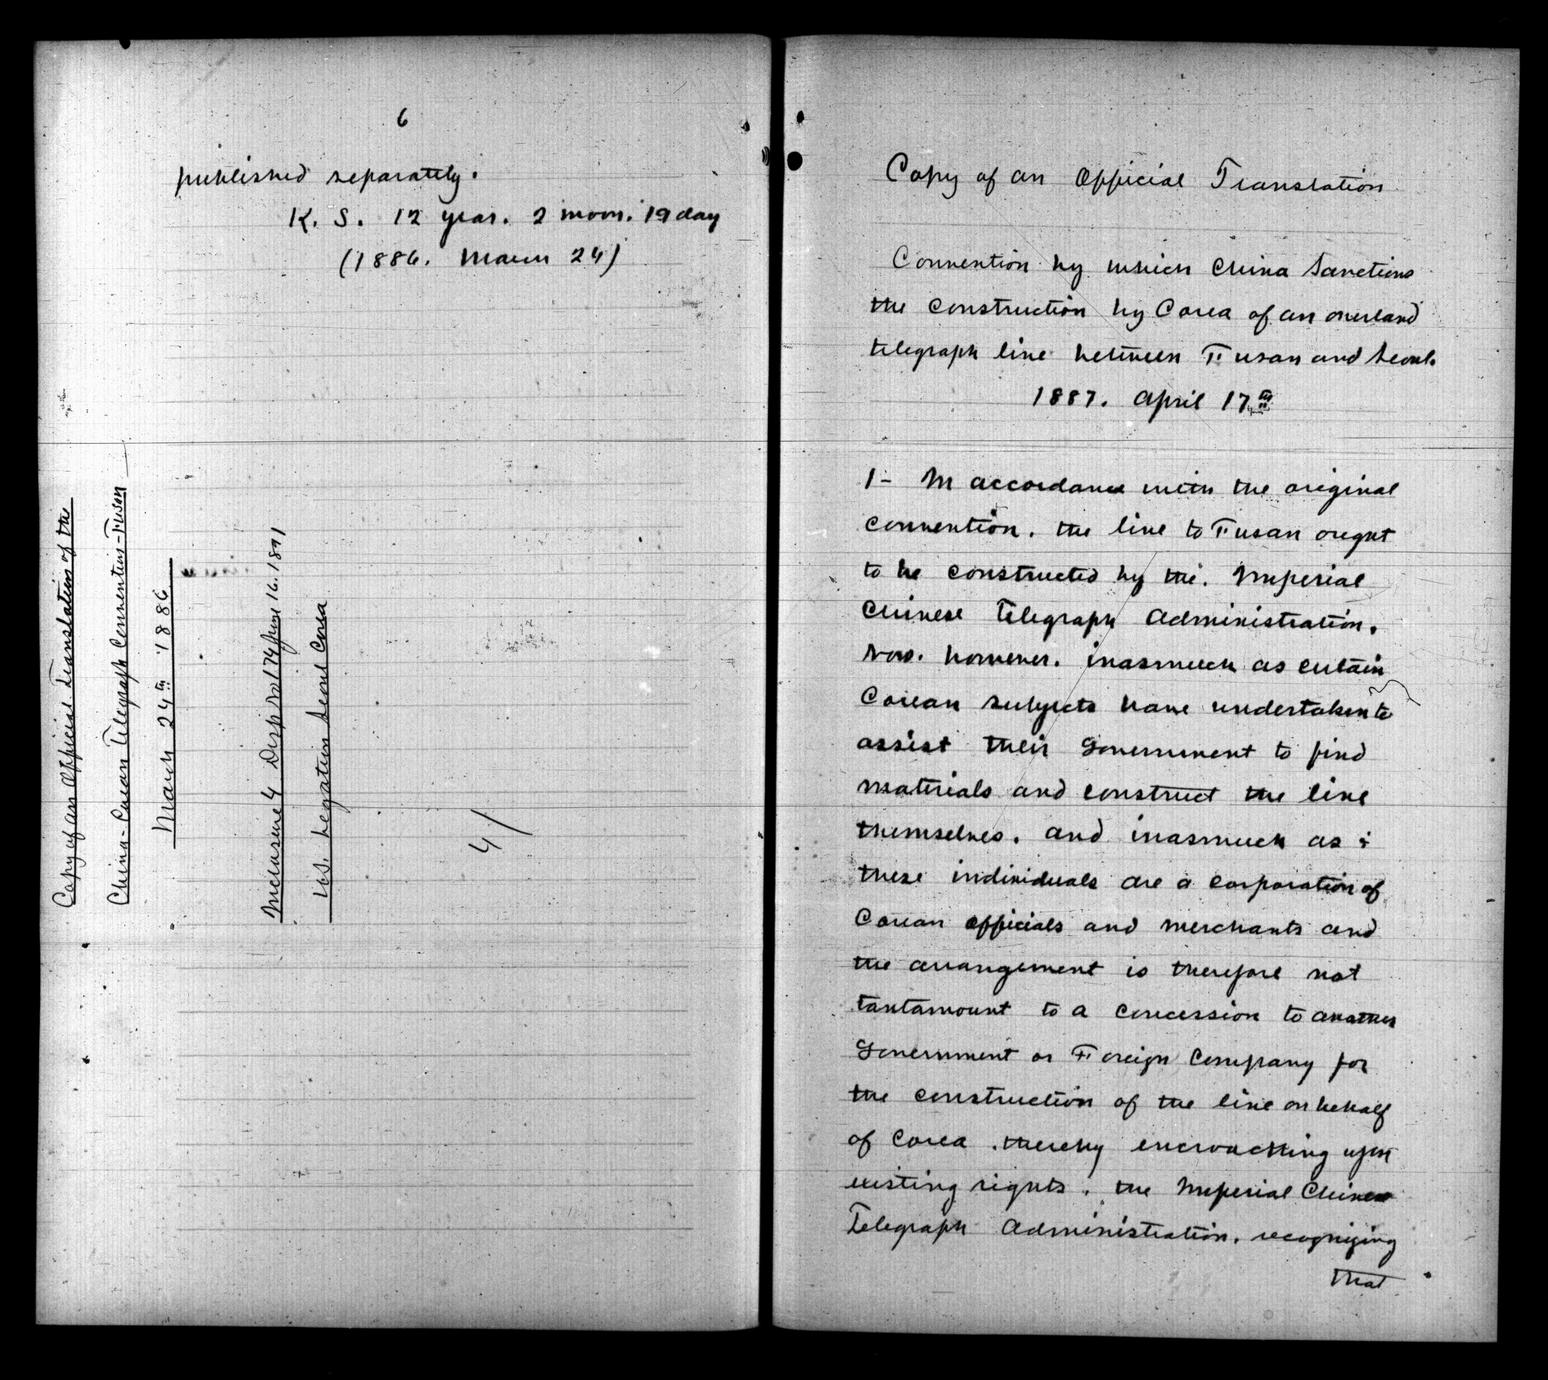 6
published separately.
K. S. 12 year. 2 moon. 19 day
(1886. March 24)
Copy of an Official Translation of the
China-Corean Telegraph Convention-Fusan
March 24th 1886
Inclosure 4 Disp No 174 June 16. 1891
U.S. Legation Seoul Corea
4/
Copy of an Official Translation
Convention by which China Sanctions
the construction by Corea of an overland
telegraph line between Fusan and Seoul.
1887. April 17th
1- In accordance with the original
convention. the line to Fusan ought
to be constructed by the. Imperial
Chinese Telegraph Administration.
Now. however. inasmuch as certain
Corean subjects have undertaken to
assist their Government to find
materials and construct the line
themselves. and inasmuch as
these individuals are a corporation of
Corean officials and merchants and
the arrangement is therefore not
tantamount to a concession to another
Government or Foreign Company for
the construction of the line on behalf
of Corea. thereby encroaching upon
existing rights. the Imperial Chinese
Telegraph Administration. recognizing
that